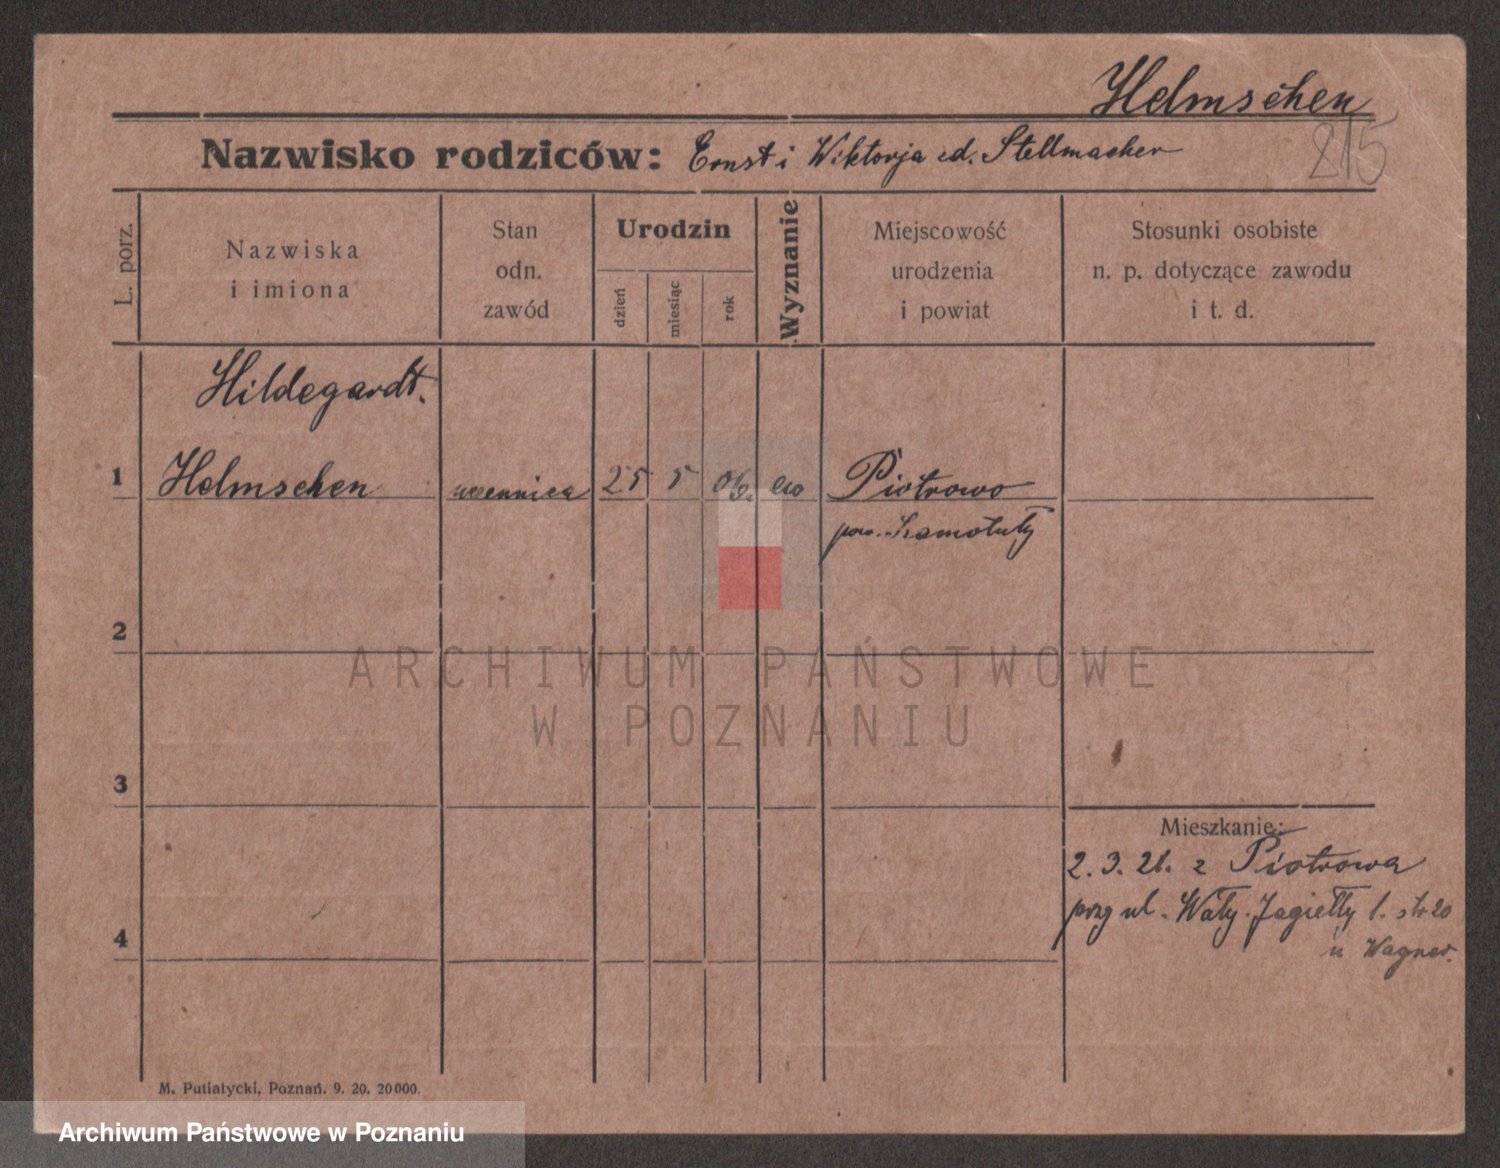 Helmschen
215
Nazwisko rodziców: Ernst i Wiktorja zd. Stellmacher
L. porz.
Nazwiska
i imiona
Stan
odn.
zawód
Urodzin
dzień
miesiąc
rok
Wyznanie
Miejscowość
urodzenia
i powiat
Stosunki osobiste
n. p. dotyczące zawodu
i t. d.
Hildegardt.
1 Helmschen uczennica 25 5 06. ew Piotrowo
pow. Szamotuły
2
ARCHIWUM PAŃSTWOWE
W POZNANIU
3
Mieszkanie:
2. 3. 21. z Piotrowa
przy ul. Wały Jagiełły l. str 20
u Wagner.
4
M. Putiatycki, Poznań. 9. 20. 20000.
Archiwum Państwowe w Poznaniu